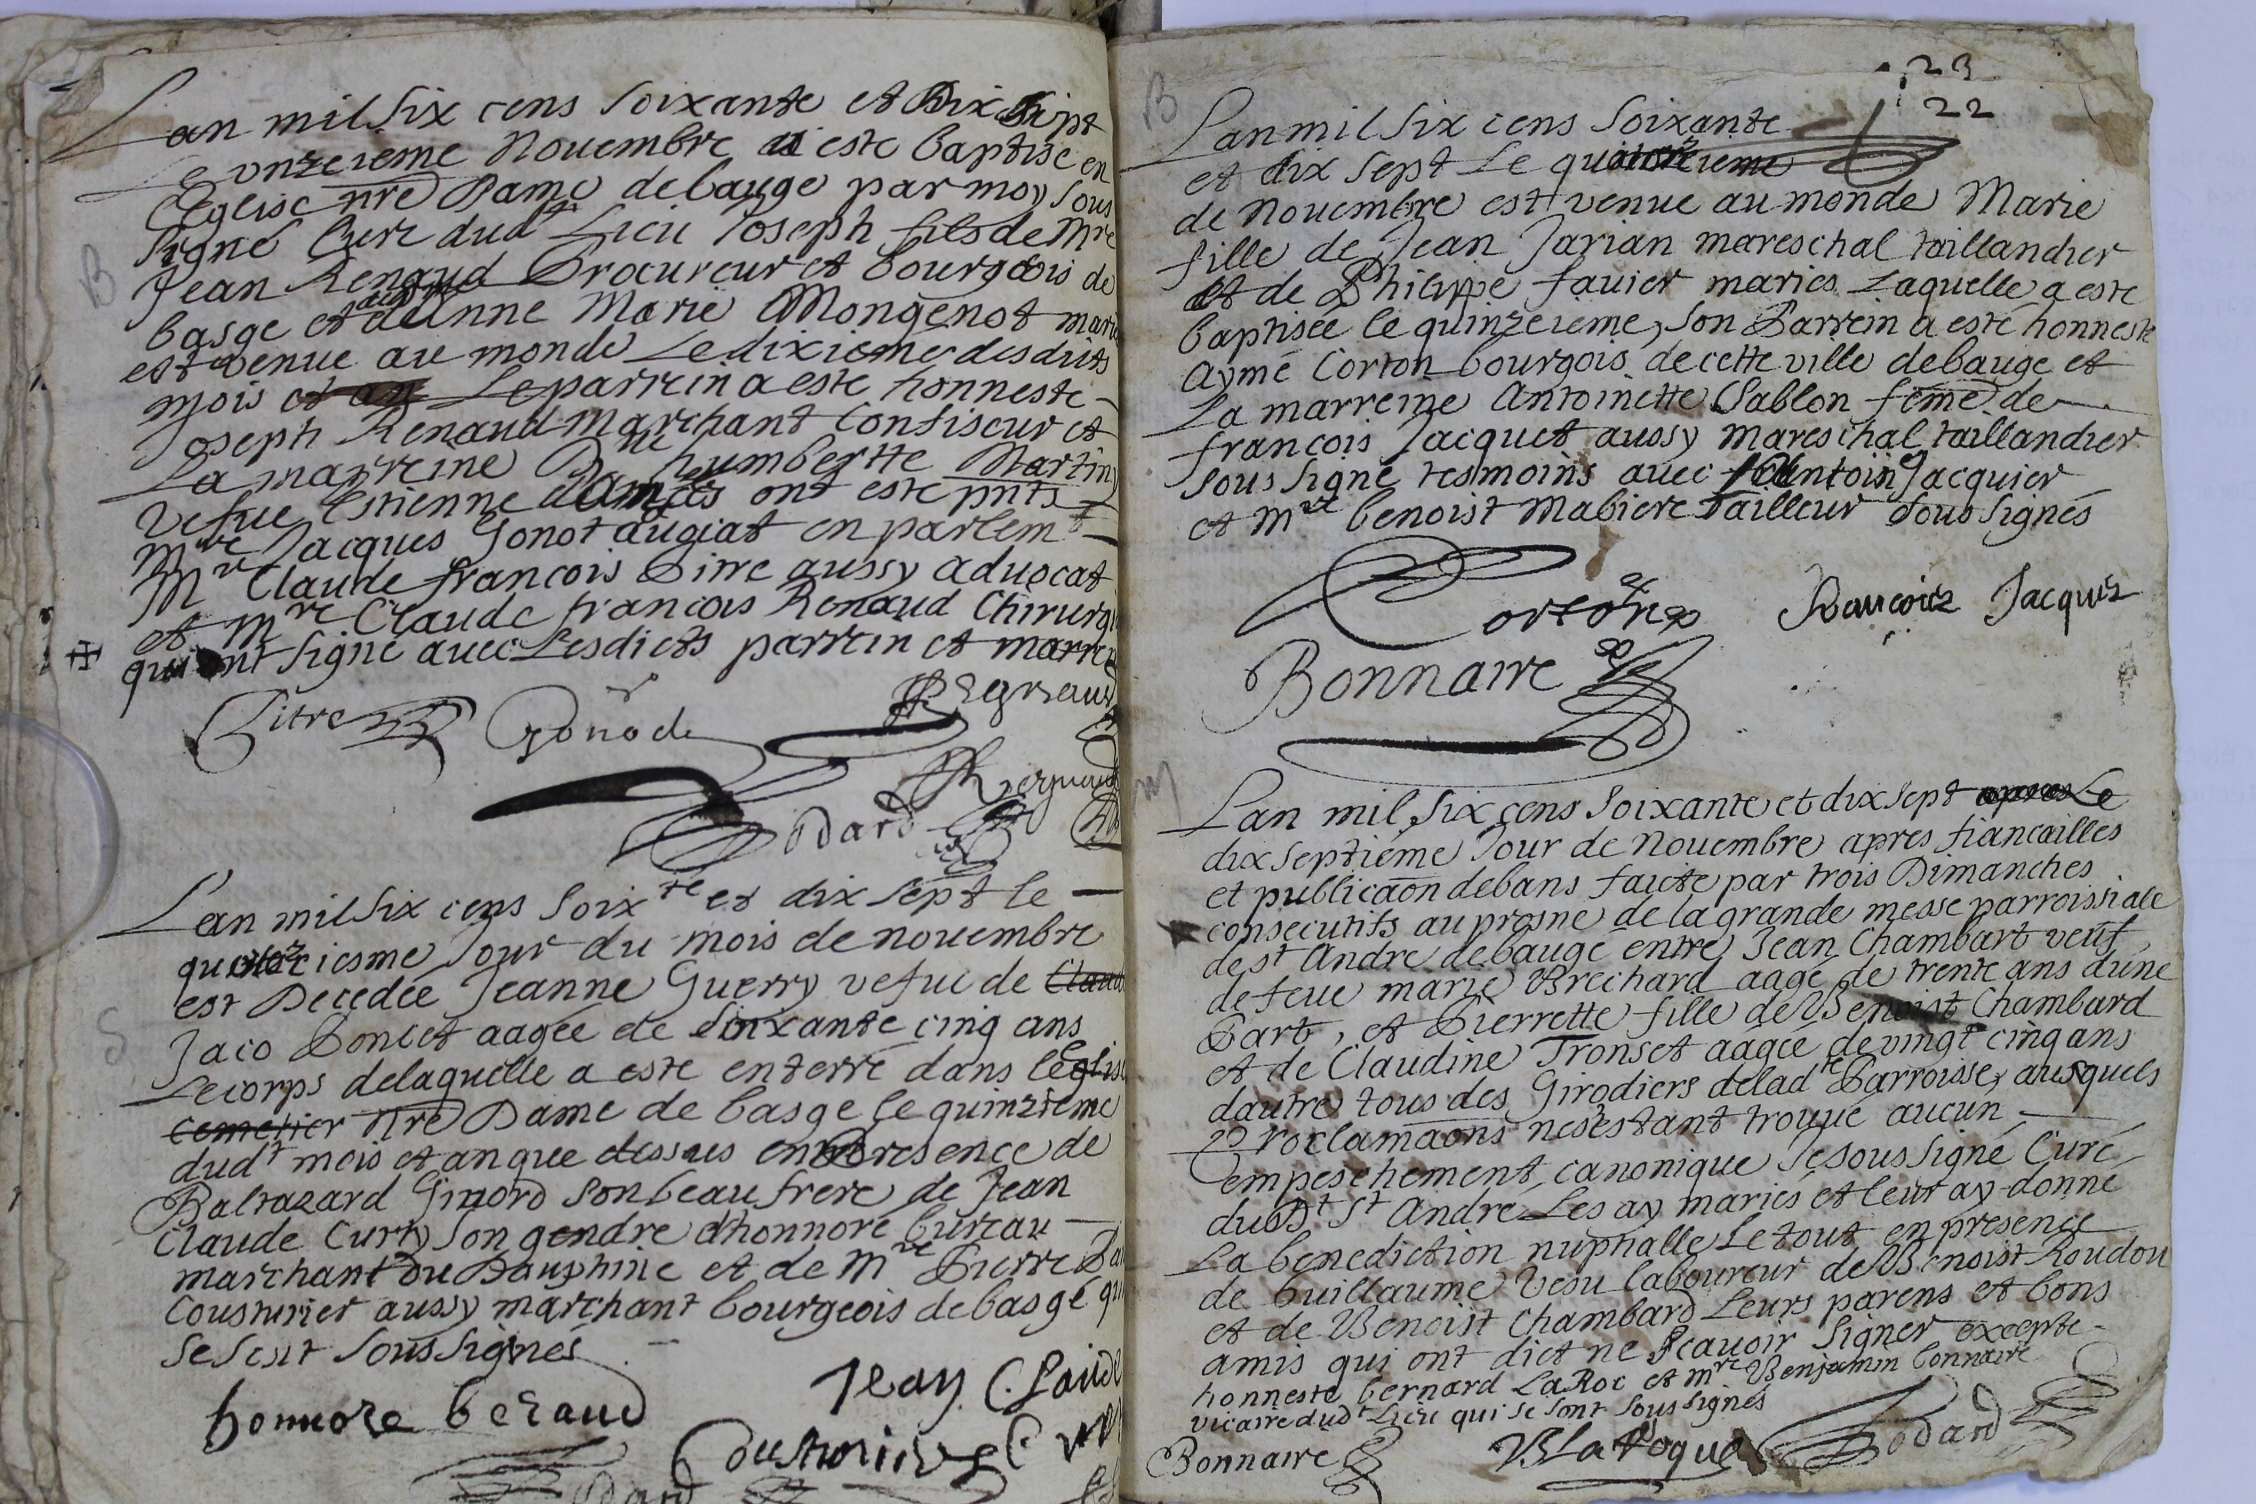 B
Lan mil Six cens soixante et Dix Sept
Le onzeieme Nouembre a este baptise en
l'Eglise nre Dame de bauge par moy sous
signé Curé dudt Lieu Joseph fils de Mre
Jean Renaud Procureur et bourgeois de
basge et de Anne Marie Mongenot maries
est venue au monde Le dixieme desdits
mois et an Le parrein a este honneste
Joseph Renaud Marchant Confiseur et
La marreine humbertte Martin
Vefue Estienne ont este pnts
Mre Jacques Gonot en parlemt
Mre Claude francois Pitre aussy aduocat
et Mre Claude francois Renaud Chirurg
qui ont signé auec Lesdicts parrein et marre
Pitre Gonod Regnaud
Regnaud
Odard
S
Lan mil six cens soixte et dix sept le
quatorziesme Jour du mois de nouembre
est Decedée Jeanne Guerry vefue de Claud
Jaco Poncet aagée de soixante cinq ans
Le corps delaquelle a este enterré dans léglis
cemetier nre Dame de basge le quinzieme
dudt mois et an que dessus en presence de
Baltazard Girord son beau frere de Jean
Claude Curty son gendre d'honnoré bureau
marchant du Dauphiné et de Mre Pierre
Cousturier aussy marchant bourgeois de basge qu
se sont soussignés
honnore beraud Jean Claude
Cousturier
23
22
B
Lan mil six cens soixante
et dix sept Le quatorzieme
de Nouembre est venue au monde Marie
fille de Jean Jarian mareschal taillandier
et de Philippe fauier maries Laquelle a este
baptisée le quinzeieme, son Parrein a esté honneste
Aymé Corton bourgois de cette ville debauge et
La marreine Antoinette Sablon feme de
francois Jacquet aussy Mareschal taillandier
sous signé tesmoins auec Antoine Jacquier
et Mre benoist Mabiere Tailleur sous signés
Corton francois Jacquet
Bonnaire
M
Lan mil six cens soixante et dix sept apres Le
dix septiéme Jour de Nouembre apres fiancailles
et publicaon de bans faicte par trois Dimanches
consecutifs au prosne de la grande messe parroissiale
de st André debauge entre Jean Chambart veuf
de feue marie Brechard aagé de trente ans dúne
Part, et Pierrette fille de Benoist Chambard
et de Claudine Tronset aagée de vingt cinq ans
dautre tous des Girodiers delad te Parroisse, ausquels
Proclamaons nes'estant trouué aucún
empeschement canonique Je sous signé Curé
dudt St André Les ay mariés et leur ay donné
La benediction nuptialle Le tout en presence
de Guillaume Vesu laboureur de Benoist Roudou
et de Benoist Chambard Leurs parens et bons
amis qui ont dict ne scauoir signer excepté
honneste bernard LaRoc et mre Benjamin bonnaire
vicaire dudt Lieu qui se sont sous signés
Bonnaire B LaRoque Dodard